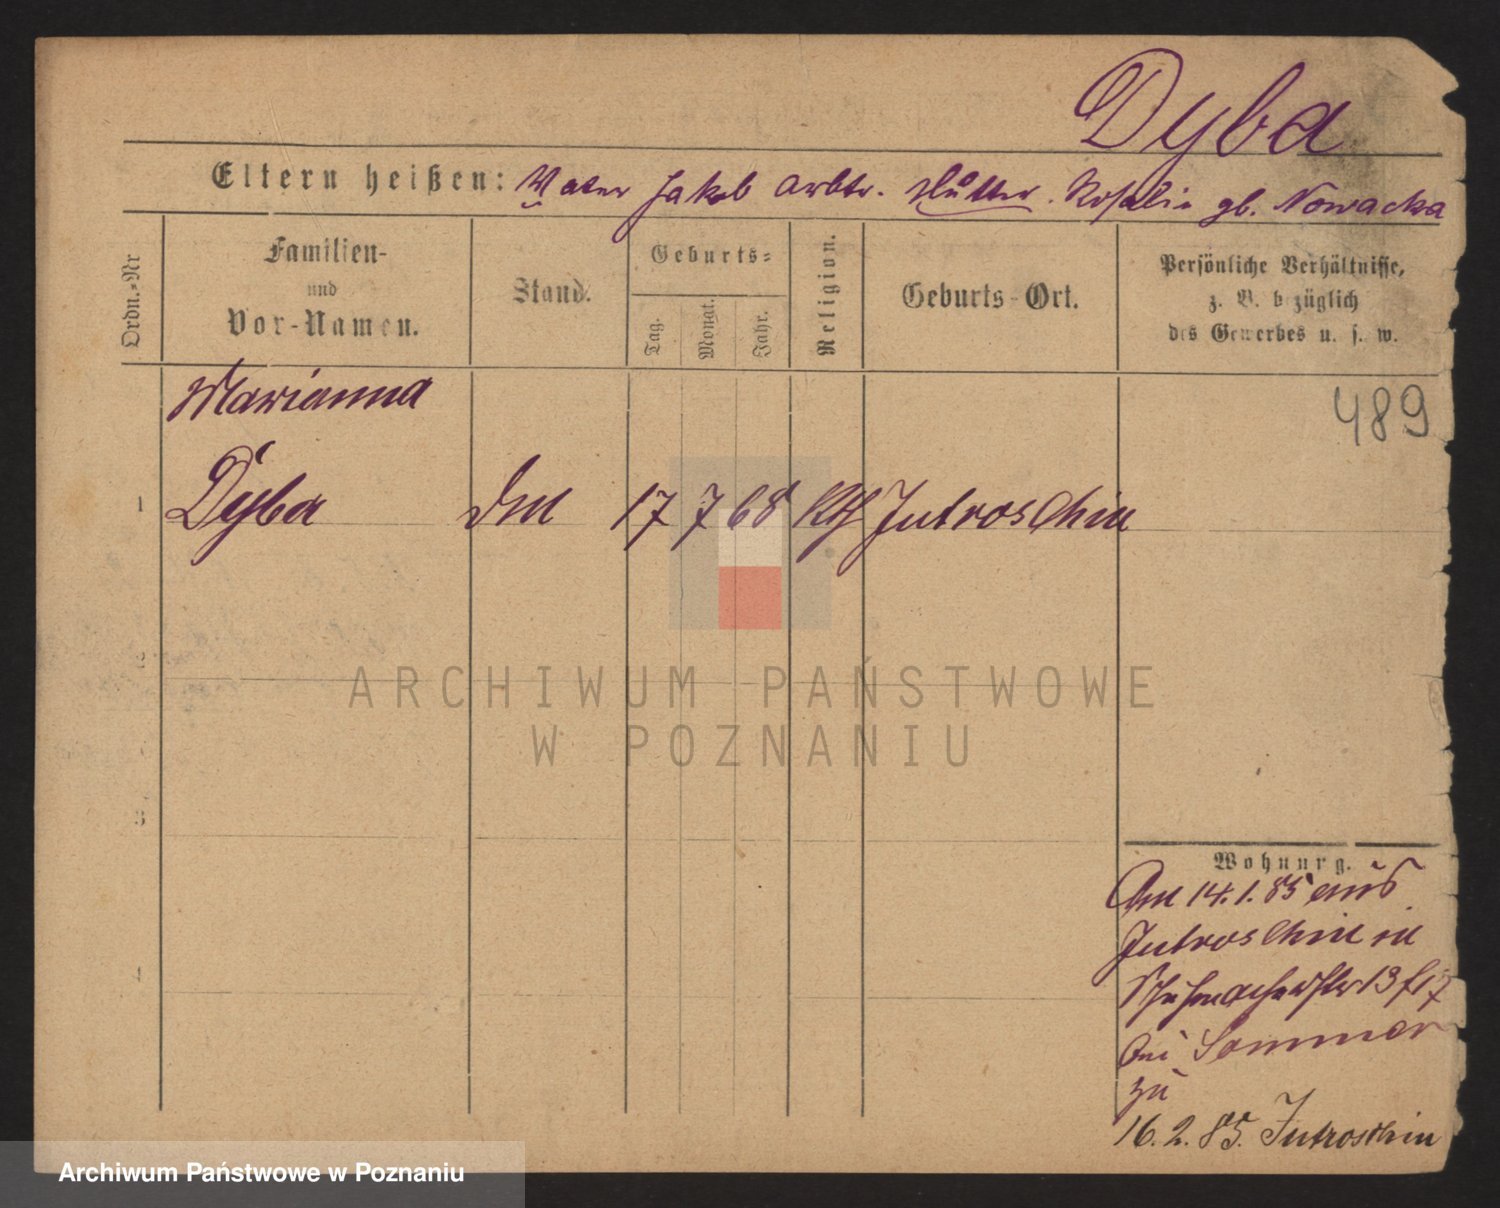 Dyba
Eltern heißen: Vater Jakob Arbtr. Mutter. Rosalie gb. Nowacka
Ordn.-Nr
Familien-
und
Vor-Namen.
Stand.
Geburts-
Tag.
Monat.
Jahr.
Religion.
Geburts-Ort.
Persönliche Verhältnisse,
z. B. bezüglich
des Gewerbes u. s. w.
489
Marianna
1 Dyba 17 7 68 Kth Jutroschin
2
3
4
ARCHIWUM PAŃSTWOWE
W POZNANIU
Wohnung.
Am 14.1.85 aus
Jutroschin in
Schuhmacherstr 13
bei Sommer
zu
16.2.85. Jutroschin
Archiwum Państwowe w Poznaniu